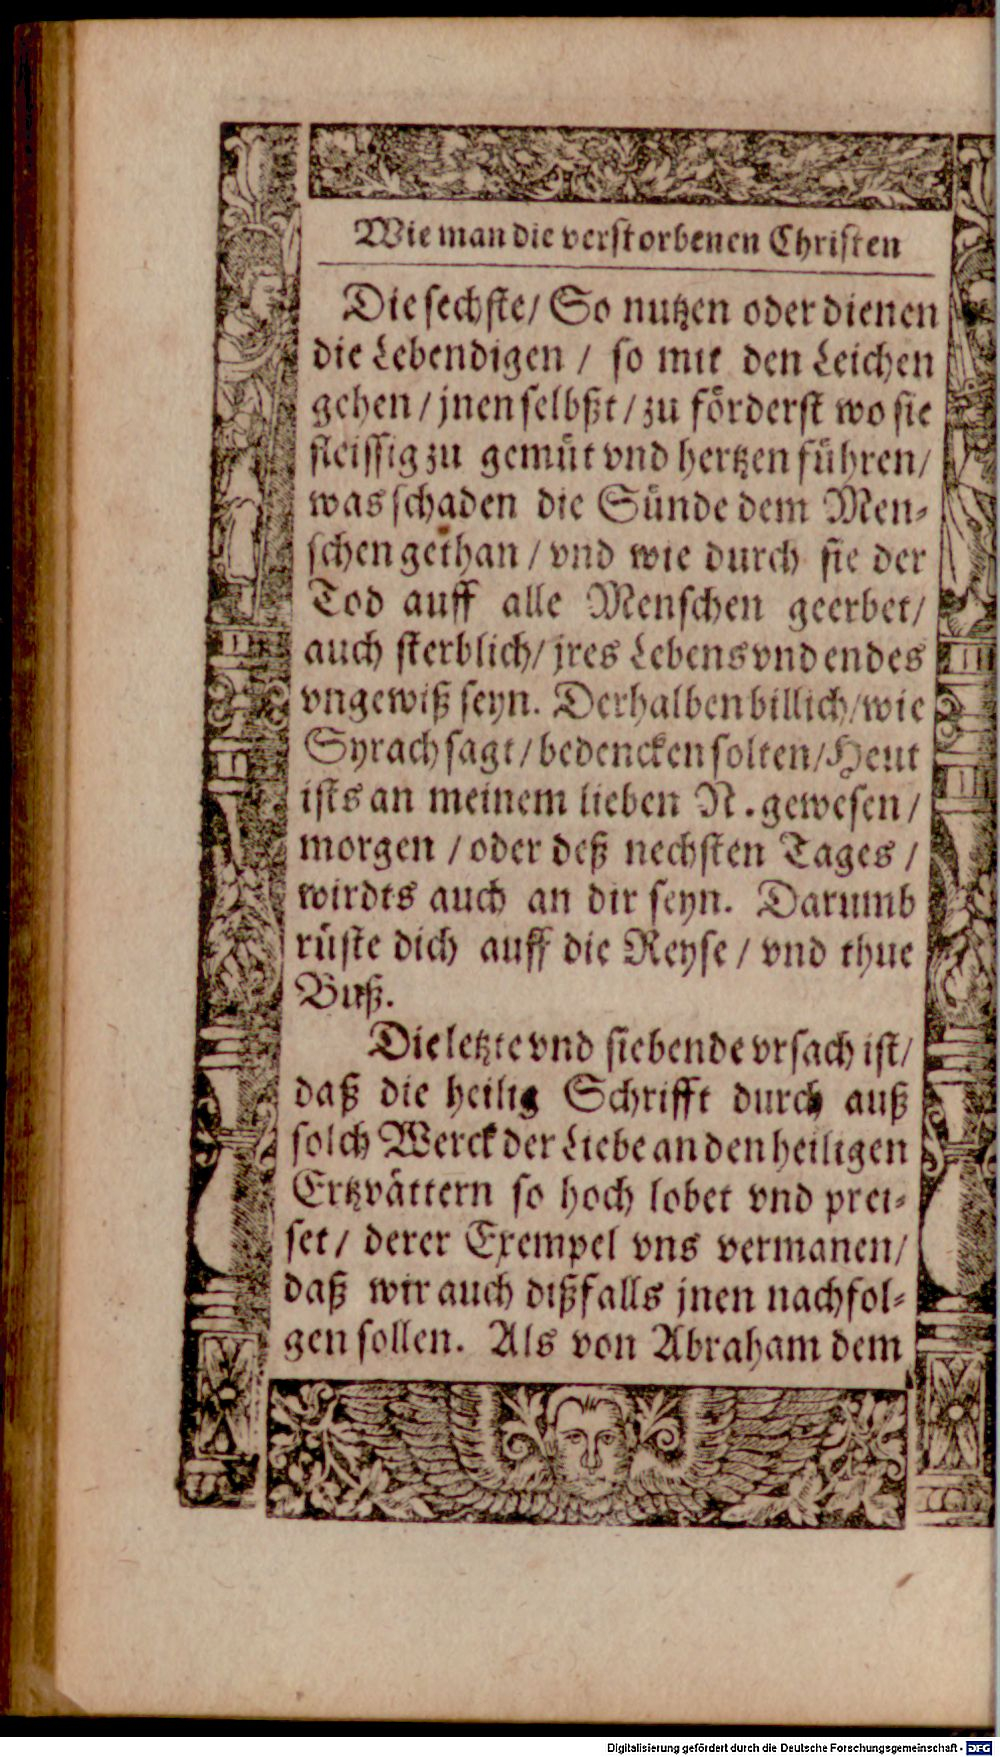 Wie man die verstorbenen Christen
Die sechste/ So nutzen oder dienen
die Lebendigen / so mit den Leichen
gehen / jnen selbßt / zu förderst wo sie
fleissig zu gemüt vnd hertzen führen/
was schaden die Sünde dem Men-
schen gethan / vnd wie durch sie der
Tod auff alle Menschen geerbet/
auch sterblich/ jres Lebens vnd endes
vngewiß seyn. Derhalben billich/wie
Syrach sagt/ bedencken solten/Heut
ists an meinem lieben N. gewesen /
morgen / oder deß nechsten Tages /
wirdts auch an dir seyn. Darumb
rüste dich auff die Reyse / vnd thue
Buß.
Die letzte vnd siebende vrsach ist/
daß die heilig Schrifft durch auß
solch Werck der Liebe an den heiligen
Ertzvättern so hoch lobet vnd prei-
set/ derer Exempel vns vermanen/
daß wir auch dißfalls jnen nachfol-
gen sollen. Als von Abraham dem
Digitalisierung gefördert durch die Deutsche Forschungsgemeinschaft - DFG